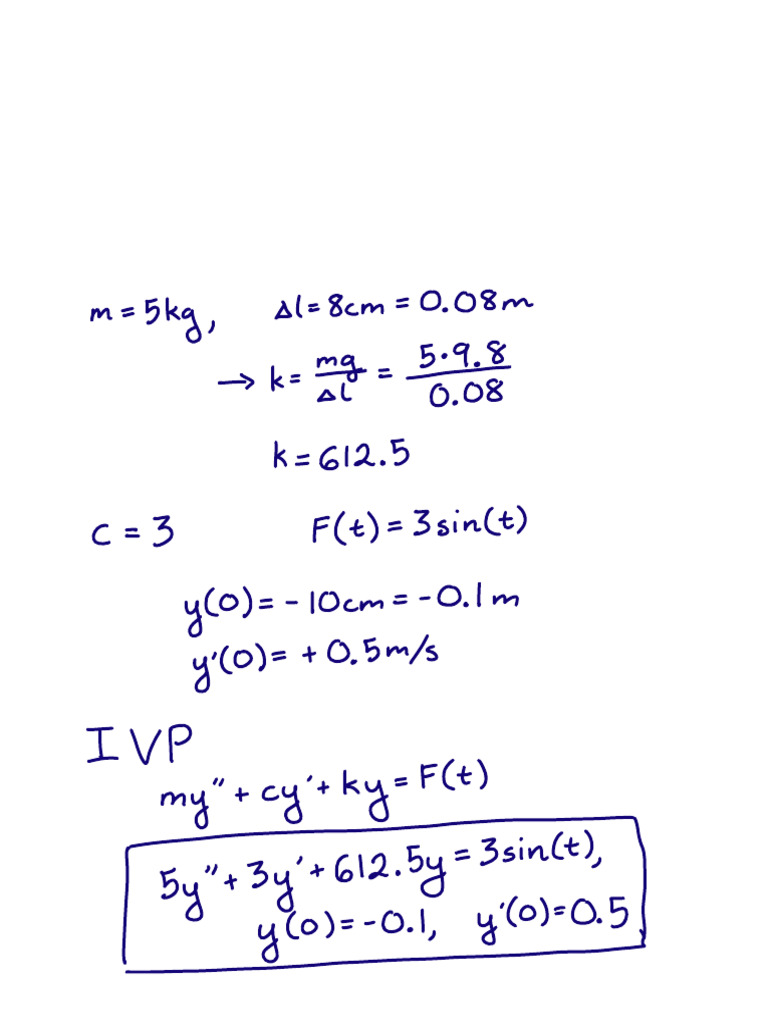 m = 5kg, Δl = 8cm = 0.08m
→ k = mg/Δl = 5·9.8/0.08
k = 612.5
c = 3 F(t) = 3sin(t)
y(0) = -10cm = -0.1m
y'(0) = +0.5m/s
IVP
my" + cy' + ky = F(t)
5y" + 3y' + 612.5y = 3sin(t),
y(0) = -0.1, y'(0) = 0.5